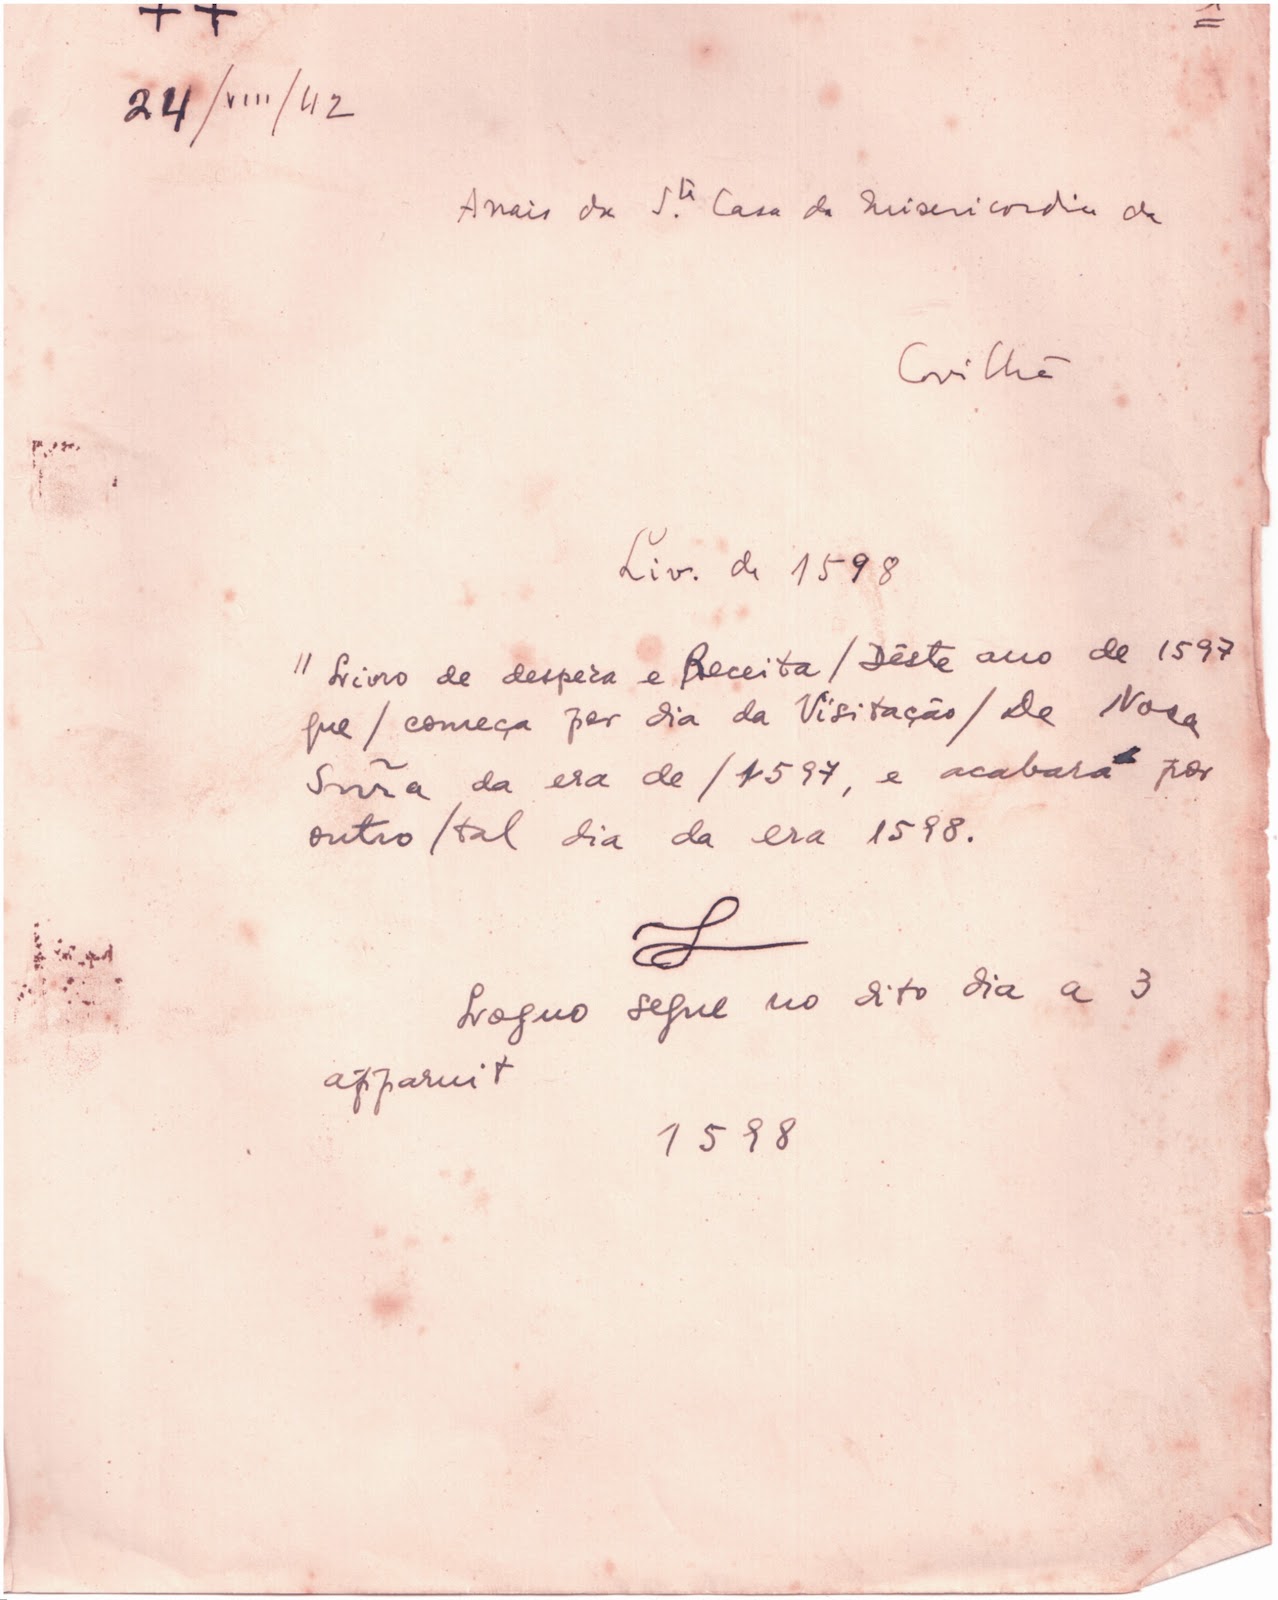 ++ 1
24/VIII/42
Anais da S.ta Casa da Misericordia da
Covilhã
Liv. de 1598
" Livro de despeza e Receita / Dêste ano de 1597
que / começa por dia da Visitação / De Nosa
Snr̃a da era de / 1597, e acabará por
outro / tal dia da era 1598.
segue no dito dia a 3
apparuit
1598